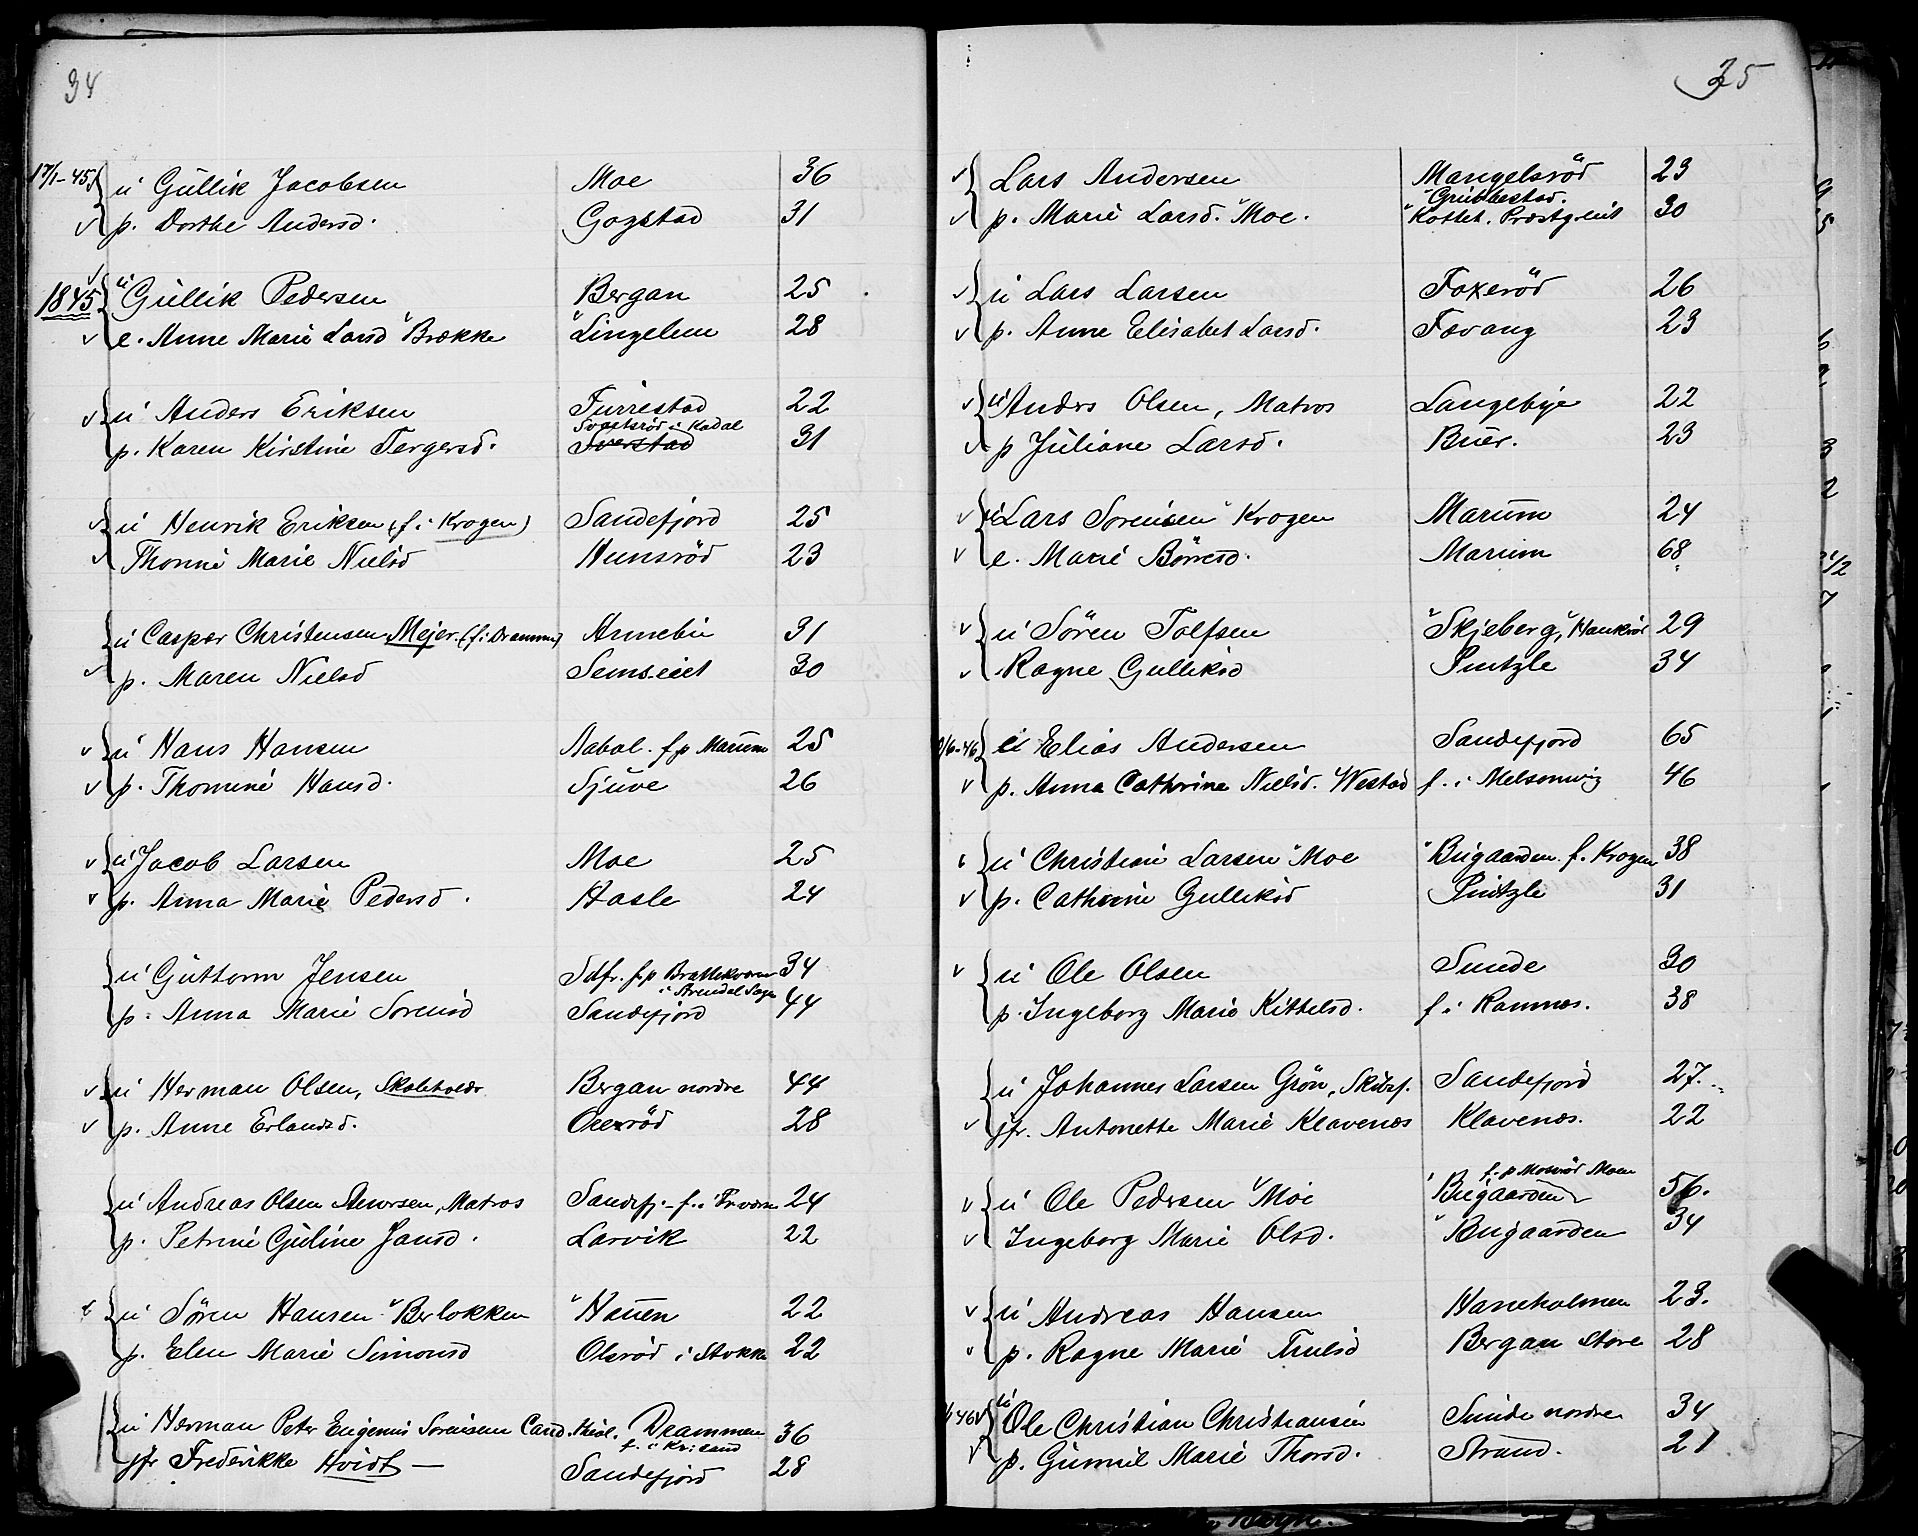 34
17/1-45 u Gullik Jacobsen Moe 36
p. Dorthe Andersd. Gogstad 31
1845 u Gullik Pedersen Bergan 25
e. Anne Marie Larsd "Brække "Lingelem 28
u Anders Eriksen Furrestad 22
Svartsrød i Kodal
p. Karen Kirstine Tergersd. Sverstad 31
u Henrik Eriksen (f. i Krogen) Sandefjord 25
Thomine Marie Nielsd Hunsröd 23
u Casper Christensen Mejer (f. i Drammen) Annebu 31
p. Maren Nielsd Sems.eiet 30
u Hans Hansen Aabøl. f.p Marum 25
p. Thomine Hansd. Sjuve 26
u Jacob Larsen Moe 25
p. Anna Marie Pedersd. Hasle 24
u Guttorm Jensen Sdfr. f.p Brattekværn 34
i Arendal Sogn
p. Anna Marie Sorensd Sandefjord 44
u Herman Olsen, Skoleholder Bergan nordre 44
p. Anne Erlandsd. Oxeröd 28
u Andreas Olsen Matros Sandefj. - f. i 24
p. Petrine Guline Jansd. Larvik 22
u Søren Hansen "Berlokken "Hauen 22
p. Elen Marie Simonsd Olsröd i Stokke 22
u Herman Peter Eugenius Sørensen Cand. theol. Drammen 36
f. i Kr:sand
jfr Frederikke Hvidt — Sandefjord 28
35
Lars Andersen Mangelsröd 23
"Grubbestad.
p. Marie Larsd. "Moe. "Kottet. Præstg.eiet 30
u Lars Larsen Foxeröd 26
p. Anne Elisabet Larsd. Fævang 23
u Anders Olsen, Matros Langebye 22
p Juliane Larsd. Buer. 23
u Lars Sorensen "Krogen Marum 24
e. Marie Börresd. Marum 68
u Sören Tolfsen "Skjeberg, 29
Ragne Gulliksd Puntzle 34
/6-46 u Elias Andersen Sandefjord 65
p. Anna Cathrine Nielsd. "Westad f. i Melsomvig 46
u Christian Larsen "Moe "Bugaarden. f. Krogen 38
p. Cathrine Gulliksd Puntzle 31
u Ole Olsen Sunde 30
p. Ingeborg Marie Kittelsd. f. i Ramnæs. 38
u Johannes Larsen Grön, Skibsf. Sandefjord 27.
jfr. Antonette Marie Klavenæs Klavenæs. 22
f. p Moeröd Moen
u Ole Pedersen "Moe "Bugaarden 56.
Ingeborg Marie Olsd. "Bugaarden 34
u Andreas Hansen Haneholmen 23.
p. Ragne Marie Trulsd Bergan store 28
46 u Ole Christian Christiansen Sunde nordre 34
p. Gunnil Marie Thorsd. Strand. 21